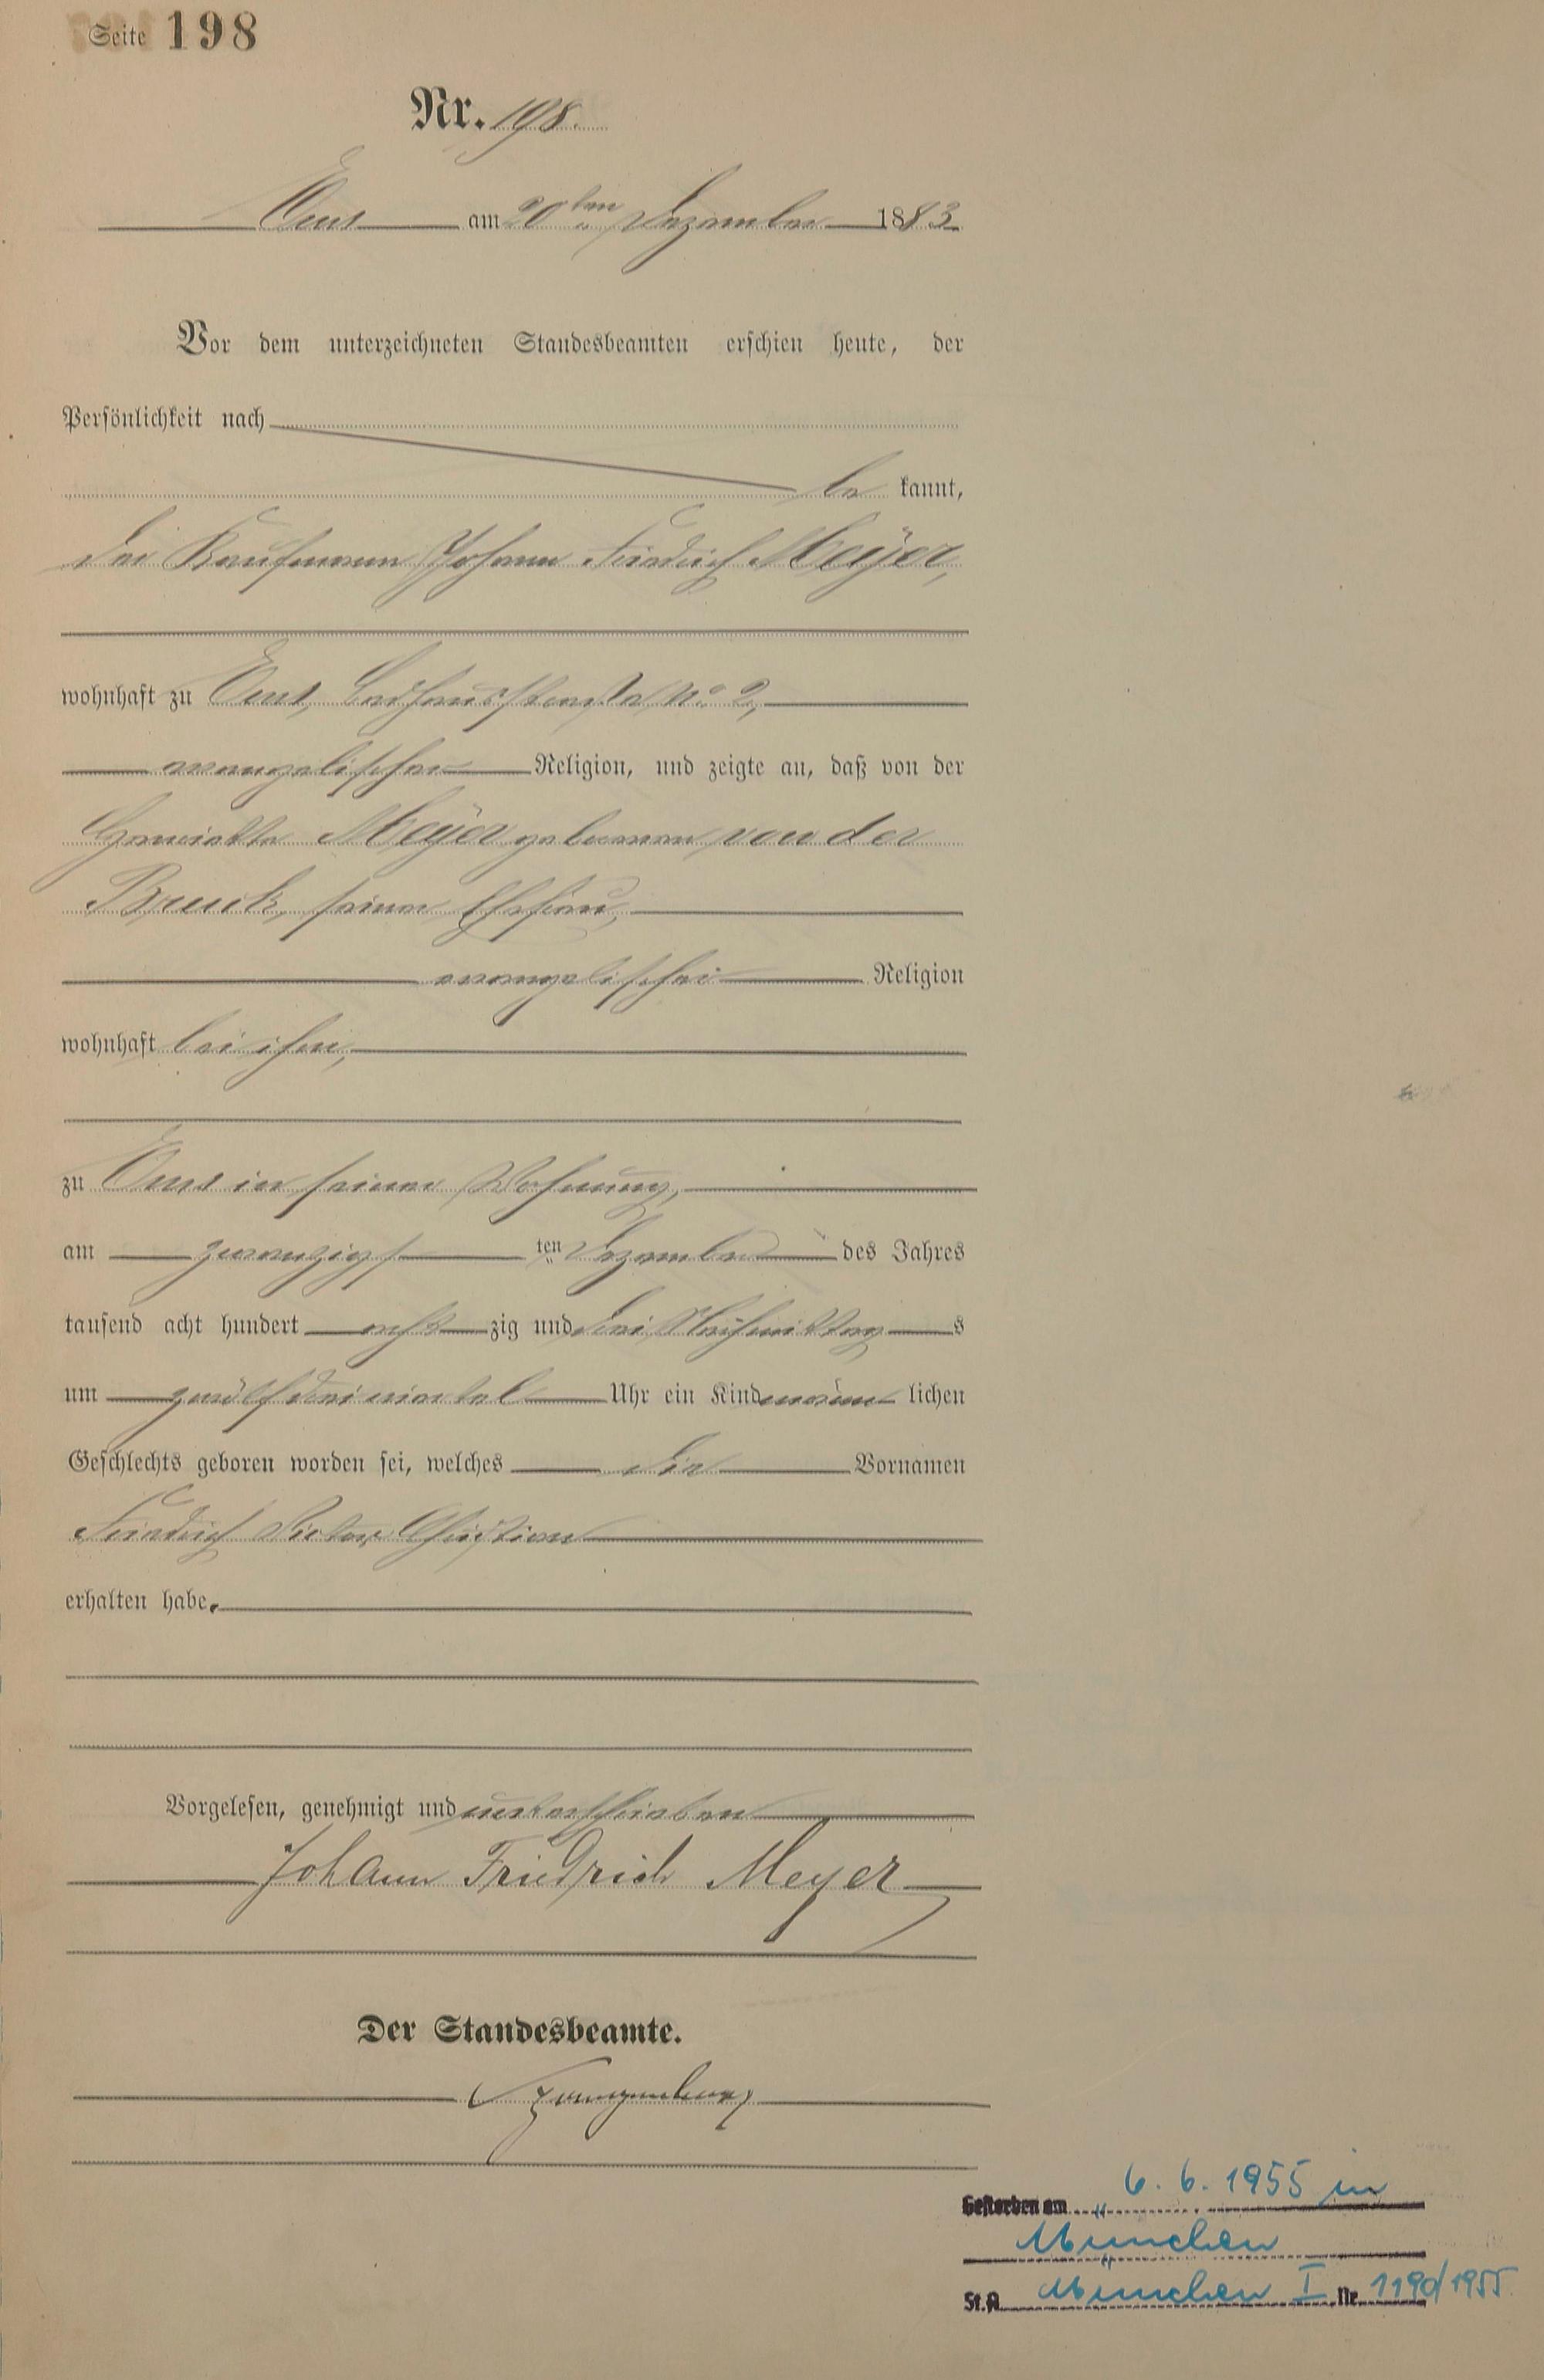 Seite 198
Nr. 198.
Ems am 20ten Dezember 1883
Vor dem unterzeichneten Standesbeamten erschien heute, der
Persönlichkeit nach
be kannt,
der Kaufmann Johann Friedrich Meÿer,
wohnhaft zu Ems, No 2,
evangelischer Religion, und zeigte an, daß von der
Henriette Meÿer geborenen von der
Bruck, seiner Ehefrau,
evangelischer Religion
wohnhaft bei ihm,
zu Ems in seiner Wohnung,
am zwanzigs ten Dezember des Jahres
tausend acht hundert acht zig und drei Nachmittag s
um zwölf dreiviertel Uhr ein Kind männ lichen
Geschlechts geboren worden sei, welches die Vornamen
Friedrich Victor Christian
erhalten habe.
Vorgelesen, genehmigt und unterschrieben
Johann Friedrich Meyer
Der Standesbeamte.
Gestorben am 6. 6. 1955 in
München
St.A. München I Nr. 1190/1955